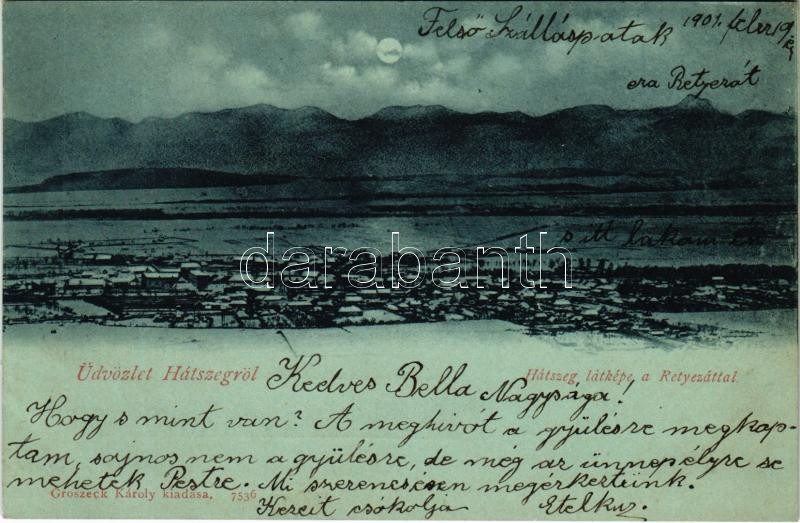 Felső Szálláspatak 1901. febr 19 én
era Retyezát
s itt lakom én
darabanth.com
Üdvözlet Hátszegröl
Hátszeg látképe a Retyezáttal
Kedves Bella Nagysága!
Hogy s mint van? A meghivót a gyülésre megkap-
tam, sajnos nem a gyülésre, de még az ünnepélyre se
mehetek Pestre. Mi szerencsésen megérkeztünk.
Groszeck Károly kiadása, 7536
Kezeit csókolja Etelkus.